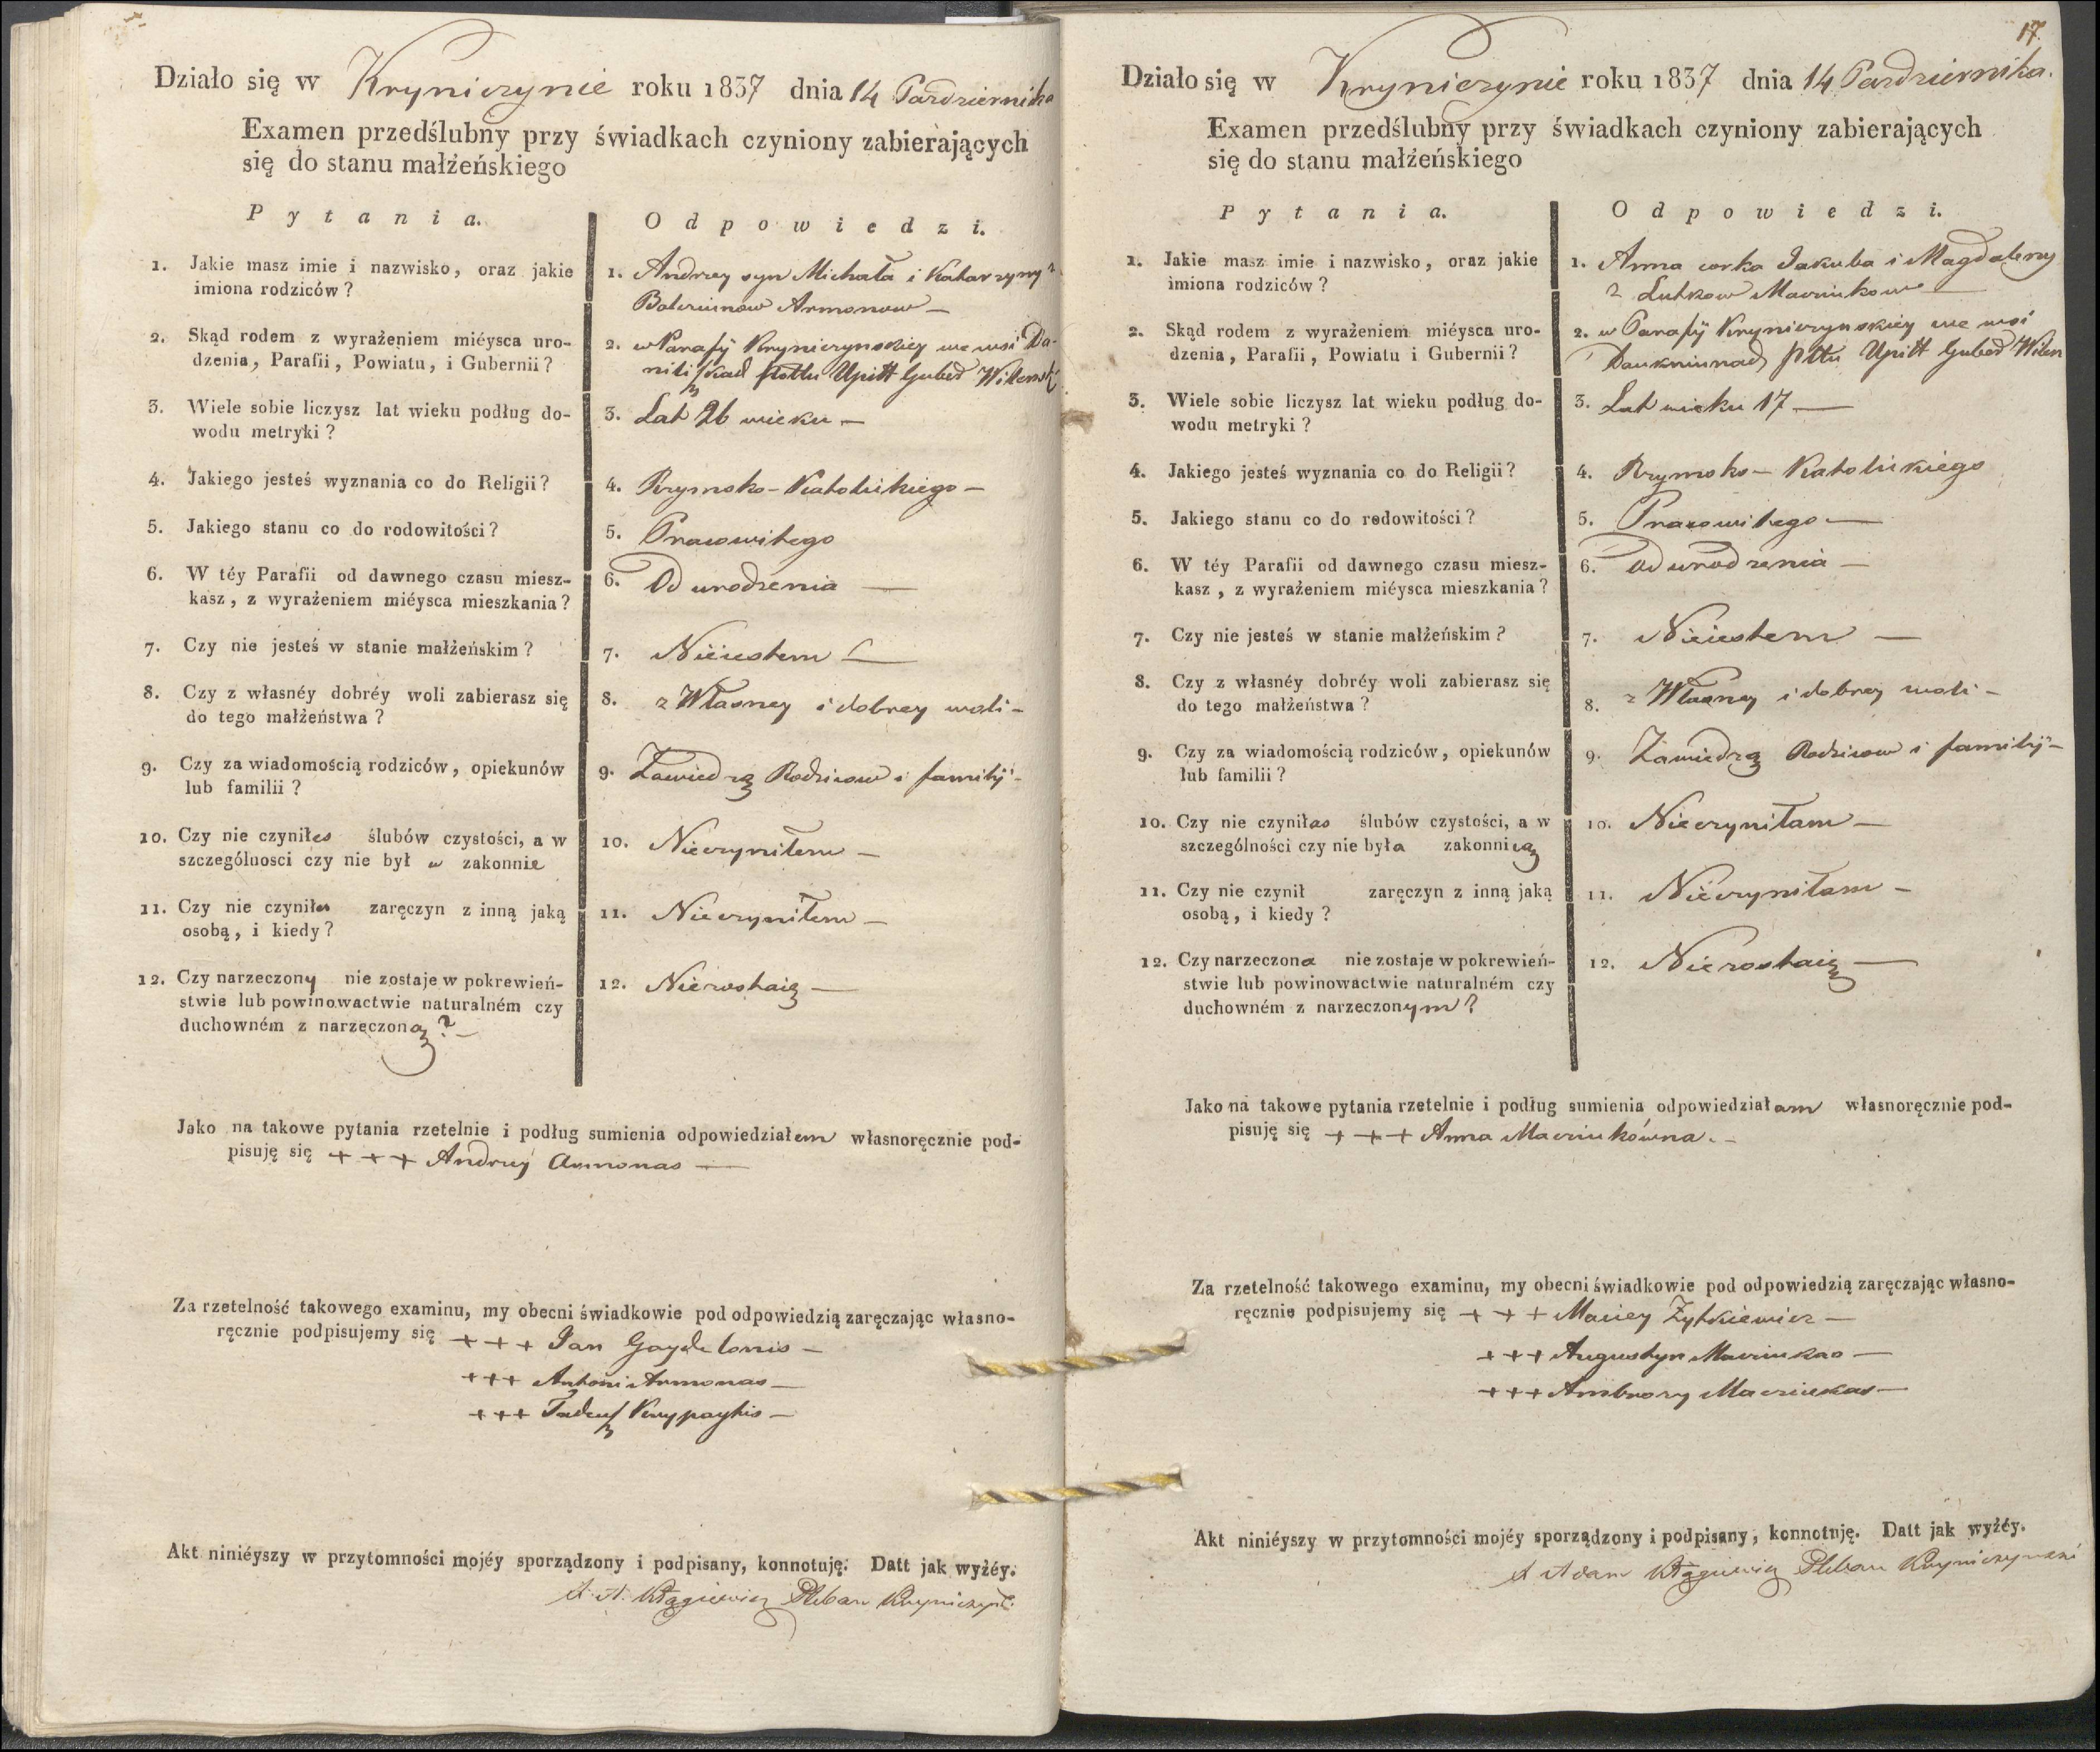 Działo się w Kryniczynie roku 1837 dnia 14 Pazdziernika
Examen przedślubny przy świadkach czyniony zabierających
się do stanu małżeńskiego
Pytania.
Odpowiedzi.
1. Jakie masz imie i nazwisko, oraz jakie
imiona rodziców?
1. Andrzey syn Michała i Katarzyny z
Armonow —
2. Skąd rodem z wyrażeniem miéysca uro-
dzenia, Parafii, Powiatu, i Gubernii?
2. w Parafij Kryniczynskiey we wsi Da-
niliszkach Upitt Guber Wilensk
3. Wiele sobie liczysz lat wieku podług do-
wodu metryki?
3. Lat 26 wieku —
4. Jakiego jesteś wyznania co do Religii?
4. Rzymsko-Katolickiego —
5. Jakiego stanu co do rodowitości?
5. Pracowitego
6. W téy Parafii od dawnego czasu miesz-
kasz, z wyrażeniem miéysca mieszkania?
6. Od urodzenia —
7. Czy nie jesteś w stanie małżeńskim?
7. Nieiestem —
8. Czy z własnéy dobréy woli zabierasz się
do tego małżeństwa?
8. z Własney i dobrey woli —
9. Czy za wiadomością rodziców, opiekunów
lub familii?
9. Zawiedzą Rodzicow i familij —
10. Czy nie czyniłes ślubów czystości, a w
szczególnosci czy nie był w zakonnie
10. Nieczyniłem —
11. Czy nie czyniłes zaręczyn z inną jaką
osobą, i kiedy?
11. Nieczyniłem —
12. Czy narzeczony nie zostaje w pokrewień-
stwie lub powinowactwie naturalném czy
duchowném z narzeczoną? —
12. Niezostaię —
Jako na takowe pytania rzetelnie i podług sumienia odpowiedziałem własnoręcznie pod-
pisuję się + + + Andrzej Armonas —
Za rzetelność takowego examinu, my obecni świadkowie pod odpowiedzią zaręczając własno-
ręcznie podpisujemy się + + + Jan Gaydelonis —
+++ Antoni Armonas —
+++ Tadeusz —
Akt niniéyszy w przytomności mojéy sporządzony i podpisany, konnotuję. Datt jak wyżéy.
X. A. Kłągiewicz Pleban Kryniczyn.
17
Działo się w Kryniczynie roku 1837 dnia 14 Pazdziernika.
Examen przedślubny przy świadkach czyniony zabierających
się do stanu małżeńskiego
Pytania.
Odpowiedzi.
1. Jakie masz imie i nazwisko, oraz jakie
imiona rodziców?
1. Anna corka Jakuba i Magdaleny
z Lutkow Macziukow —
2. Skąd rodem z wyrażeniem miéysca uro-
dzenia, Parafii, Powiatu i Gubernii?
2. w Parafij Kryniczynskiey we wsi
Daukniunach Pttu Upitt Guber Wilen
3. Wiele sobie liczysz lat wieku podług do-
wodu metryki?
3. Lat wieku 17 —
4. Jakiego jesteś wyznania co do Religii?
4. Rzymsko-Katolickiego
5. Jakiego stanu co do rodowitości?
5. Pracowitego —
6. W téy Parafii od dawnego czasu miesz-
kasz, z wyrażeniem miéysca mieszkania?
6. Od urodzenia —
7. Czy nie jesteś w stanie małżeńskim?
7. Nieiestem —
8. Czy z własnéy dobréy woli zabierasz się
do tego małżeństwa?
8. z Własney i dobrey woli —
9. Czy za wiadomością rodziców, opiekunów
lub familii?
9. Zawiedzą Rodzicow i familij —
10. Czy nie czyniłas ślubów czystości, a w
szczególności czy nie była zakonnicą
10. Nieczyniłam —
11. Czy nie czynił zaręczyn z inną jaką
osobą, i kiedy?
11. Nieczyniłam —
12. Czy narzeczona nie zostaje w pokrewień-
stwie lub powinowactwie naturalném czy
duchowném z narzeczonym?
12. Niezostaię —
Jako na takowe pytania rzetelnie i podług sumienia odpowiedziałam własnoręcznie pod-
pisuję się + + + Anna Macziukówna. —
Za rzetelność takowego examinu, my obecni świadkowie pod odpowiedzią zaręczając własno-
ręcznie podpisujemy się + + + Maciey Zytkiewicz —
+++ Augustyn Macziukas —
+++ Ambrozy Macziukas —
Akt niniéyszy w przytomności mojéy sporządzony i podpisany, konnotuję. Datt jak wyżéy.
X Adam Kłągiewicz Pleban Krynicynski